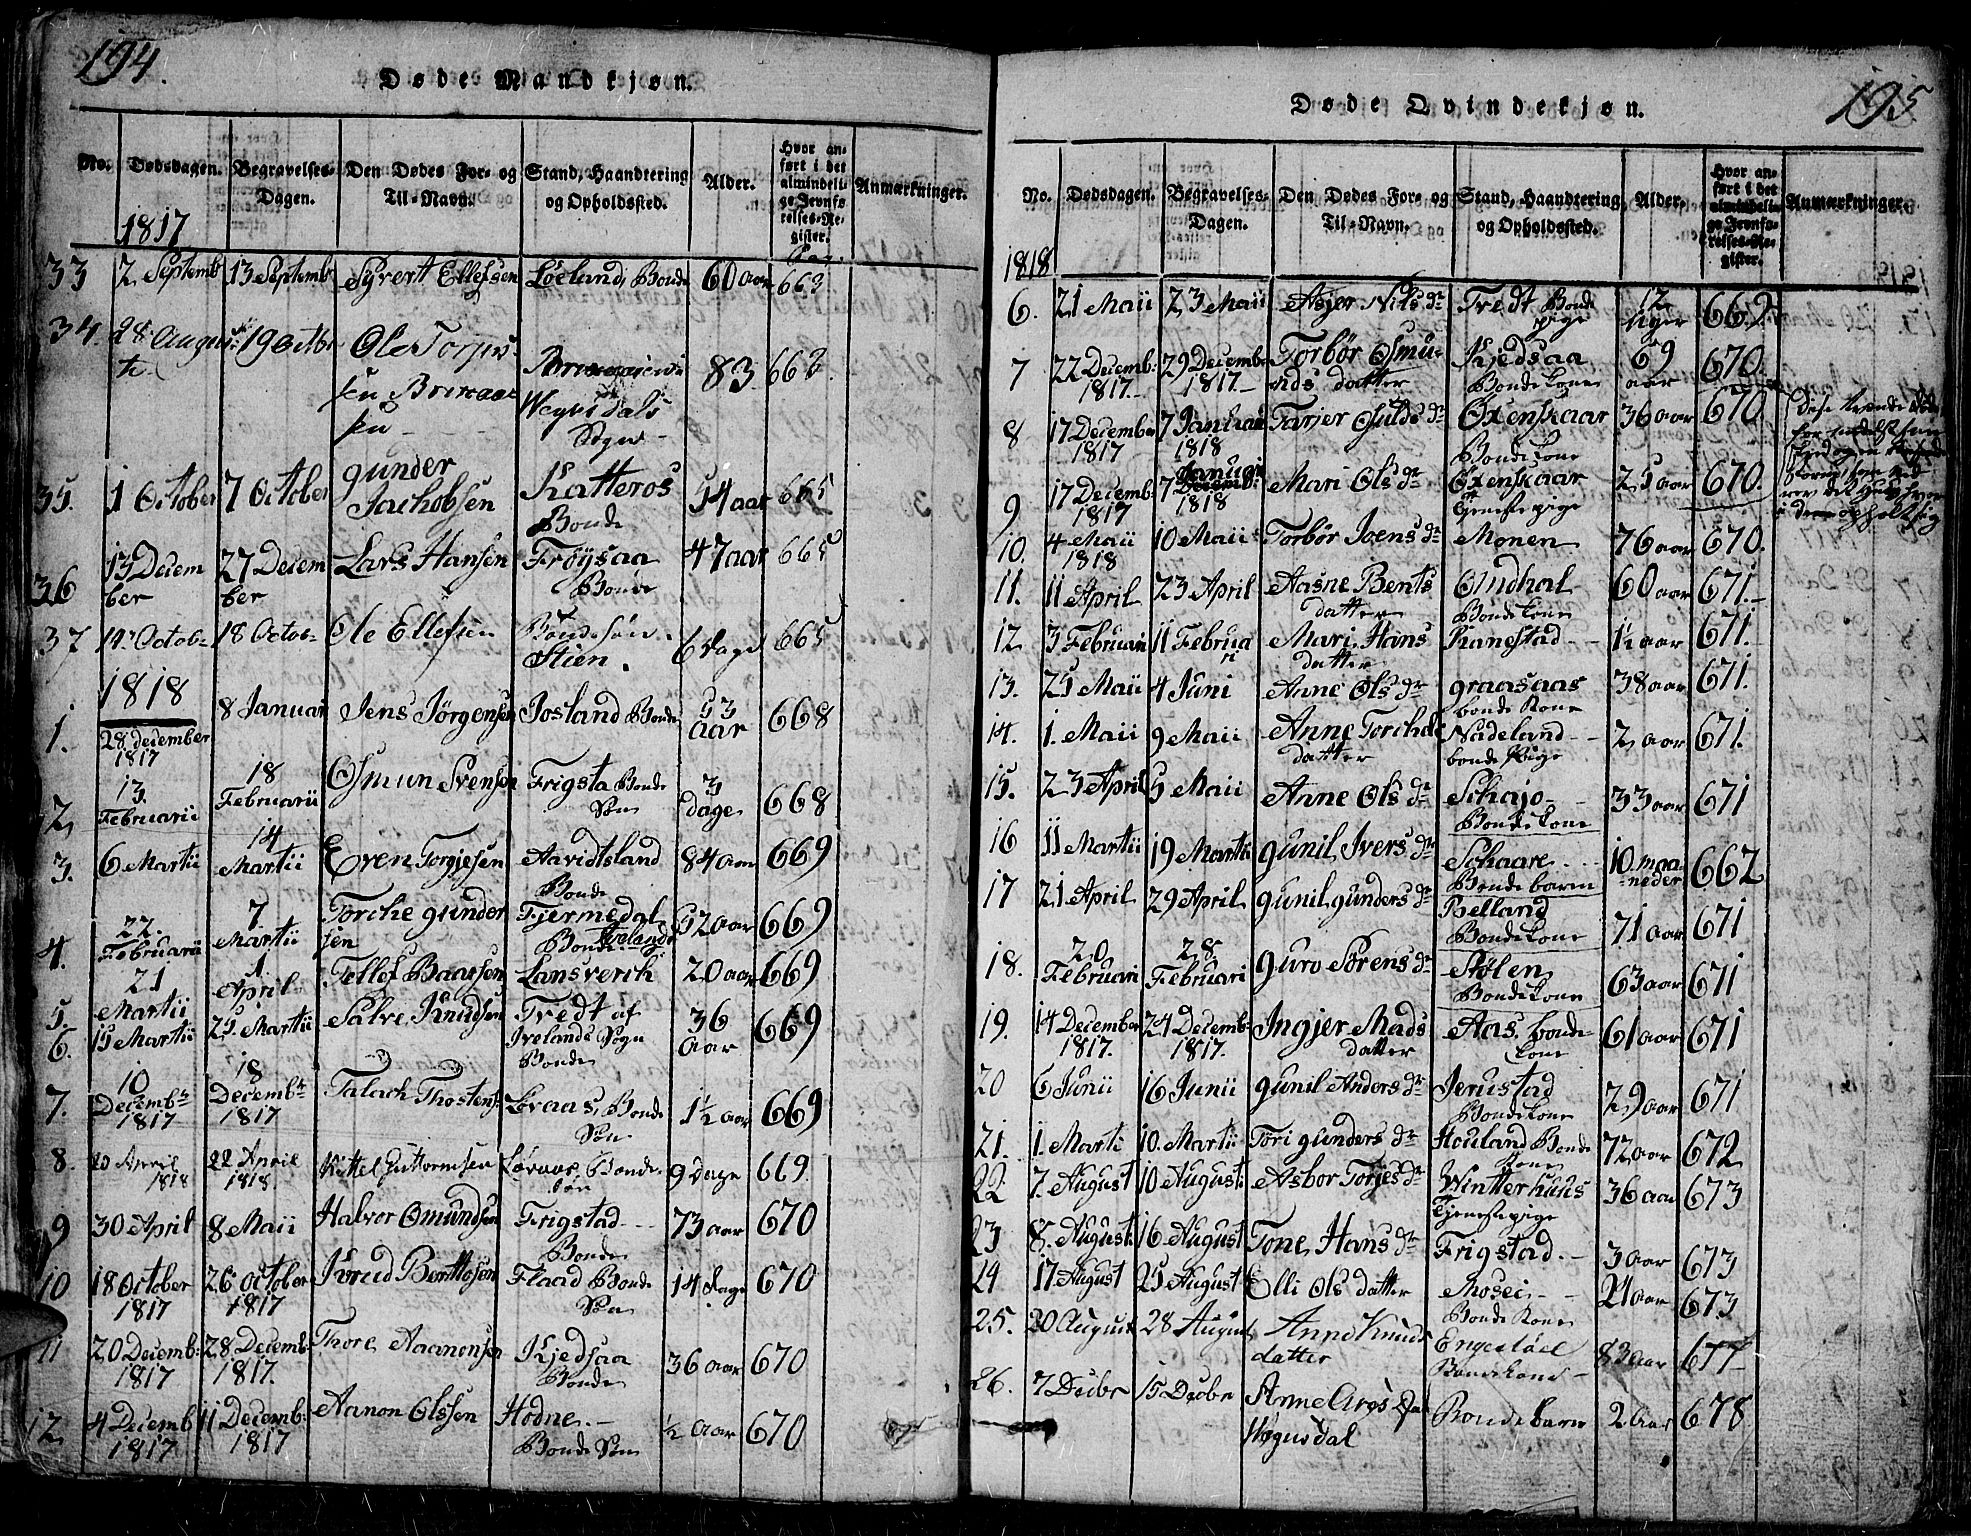 194.
Døde Mandkjøn.
No. Dødsdagen. Begravelses-Dagen. Den Dødes For- og Til-Navn. Stand, Haandtering og Opholdsted. Alder. Hvor anført i det almindelige Jevnførelses-Register. Anmærkninger.
1817
33 2 Septemb 13 Septemb Syvert Ellefsen Løeland, Bonde 60 aar 663
34 28 August 19 octbr Ole Torjus- 83 663
sen
Wegusdals
Sogn
35. 1 October 7 October gunder Jachobsen Katteros Bonde 54 aar 665
36 13 Decem ber 27 Decem ber Lars Hansen Frøysaa Bonde 47 aar 665
37 14 Octob- 18 Octob- Ole Ellefsen Bondesøn. Stien. 6 dage 665
1818
1. 28 december 1817 8 Januar Jens Jørgensen Josland Bonde 53 aar 668
2 13. Februarii 18 Februarii Osmun Svensen Frigsta Bonde Søn 3 dage 668
3. 6 Martii 14 Martii Even Torgjesen Aavidtsland Bonde 84 aar 669
4. 22. Februarii 7. Martii Torche gunder sen Fjermedal Bonde 52 aar 669
5. 21 Martii 1. April Tellef Baarsen Lansverch 20 aar 669
6. 15 Martii 25. Martii Salvi Knudsen Tvedt af Ivelands Sogn Bonde 36 aar 669
7. 10 Decembr 1817 18 Decembr 1817 Talach Thostens Løvaas, Bonde Søn 1½ aar 669
8. 20 April 1818 22 April 1818. Kittel Guttormsen Løvaas Bonde søn 9 dage 669.
9 30 April 8 Maii Halvor Omundsen Frigstad Bonde 73 aar 670
10 18 October 1817 26 October 1817 Knud Bentosen Flaad Bonde Søn 14 dage 670
11 20 Decemb: 1817 28 Decemb 1817. Thore Aanonsen Kjedsaa Bonde 36 aar 670
12. 4 Decemb 1817 11 Decemb: 1817 Aanon Olssen Hodne Bonde Søn ½ aar 670
195
Døde Qvindekjøn.
No. Dødsdagen. Begravelses-Dagen. Den Dødes For- og Til-Navn. Stand, Haandtering og Opholdsted. Alder. Hvor anført i det almindelige Jevnførelses-Register. Anmærkninger.
1818
6. 21 Maii 23 Maii Asjer Nils dr Tvedt Bonde pige 12 uger 669.
7 22 Decemb: 1817. 29 Decemb 1817. Torbør Osmunds datter Kjedsaa Bondekone 69 aar 670.
8 17 December 1817 7 Januar 1818 Tarjer Osulds dr Oxenskaar Bondekone 36 aar 670
9 17 Decemb: 1817 7 Januari 1818 Mari Ols dr Oxenskaar Tjenestepige 25 aar 670.
10. 4 Maii 1818 10 Maii Torbør Joens dr Monen 76 aar 670.
11. 11 April 23 April Aasne Bents datter Omdhal Bondekone 60 aar 671.
12 3 Februari 11 Februari Mari Hans datter Ranestad 1½ aar 671.
13. 25 Maii 4 Juni Aane Ols dr graasaas bonde Kone 38 aar 671.
14. 1. Maii 9 Maii Anne Torchels datter Nadeland bonde Pige 2 aar 671.
15. 23 April 5 Maii Anne Ols dr Schajo Bondekone 33 aar 671
16 11 Martii 19 Martii gunil Ivers dr Schaare Bondebarn 10. maaneder 662
17 21 April 29 April gunil gunders dr Belland Bondekone 71 aar 671
18. 20 Februari 28. Februari guro Sørens dr Stølen Bondekone 63 aar 671
19. 14 December 1817. 24 Decemb: 1817. Ingjer Mads datter Aas. bonde kone 61 aar 671
20 6 Junii 16 Junii gunil Anders dr Jerustad Bondekone 79 aar 671
21. 1. Marti 10. Martii Tori gunders dr Houland Bonde Kone 72 aar 672
22 7. August 10 August: Asbor Torjes dr Wintterhuus Tjenestepige 36 aar 673
23 8. August: 16. August Tone Hans dr Frigstad. 3 aar 673
24 17. August 25 August Elli Ols datter Mosei Bonde Kone 24 aar 673
25. 20 August 28 August Anne Knuds datter Engesløel Bondekone 83 aar 677
26. 7 Decbr 15 Decbr Anne Bondebarn 2 aar 678
Wegusdal